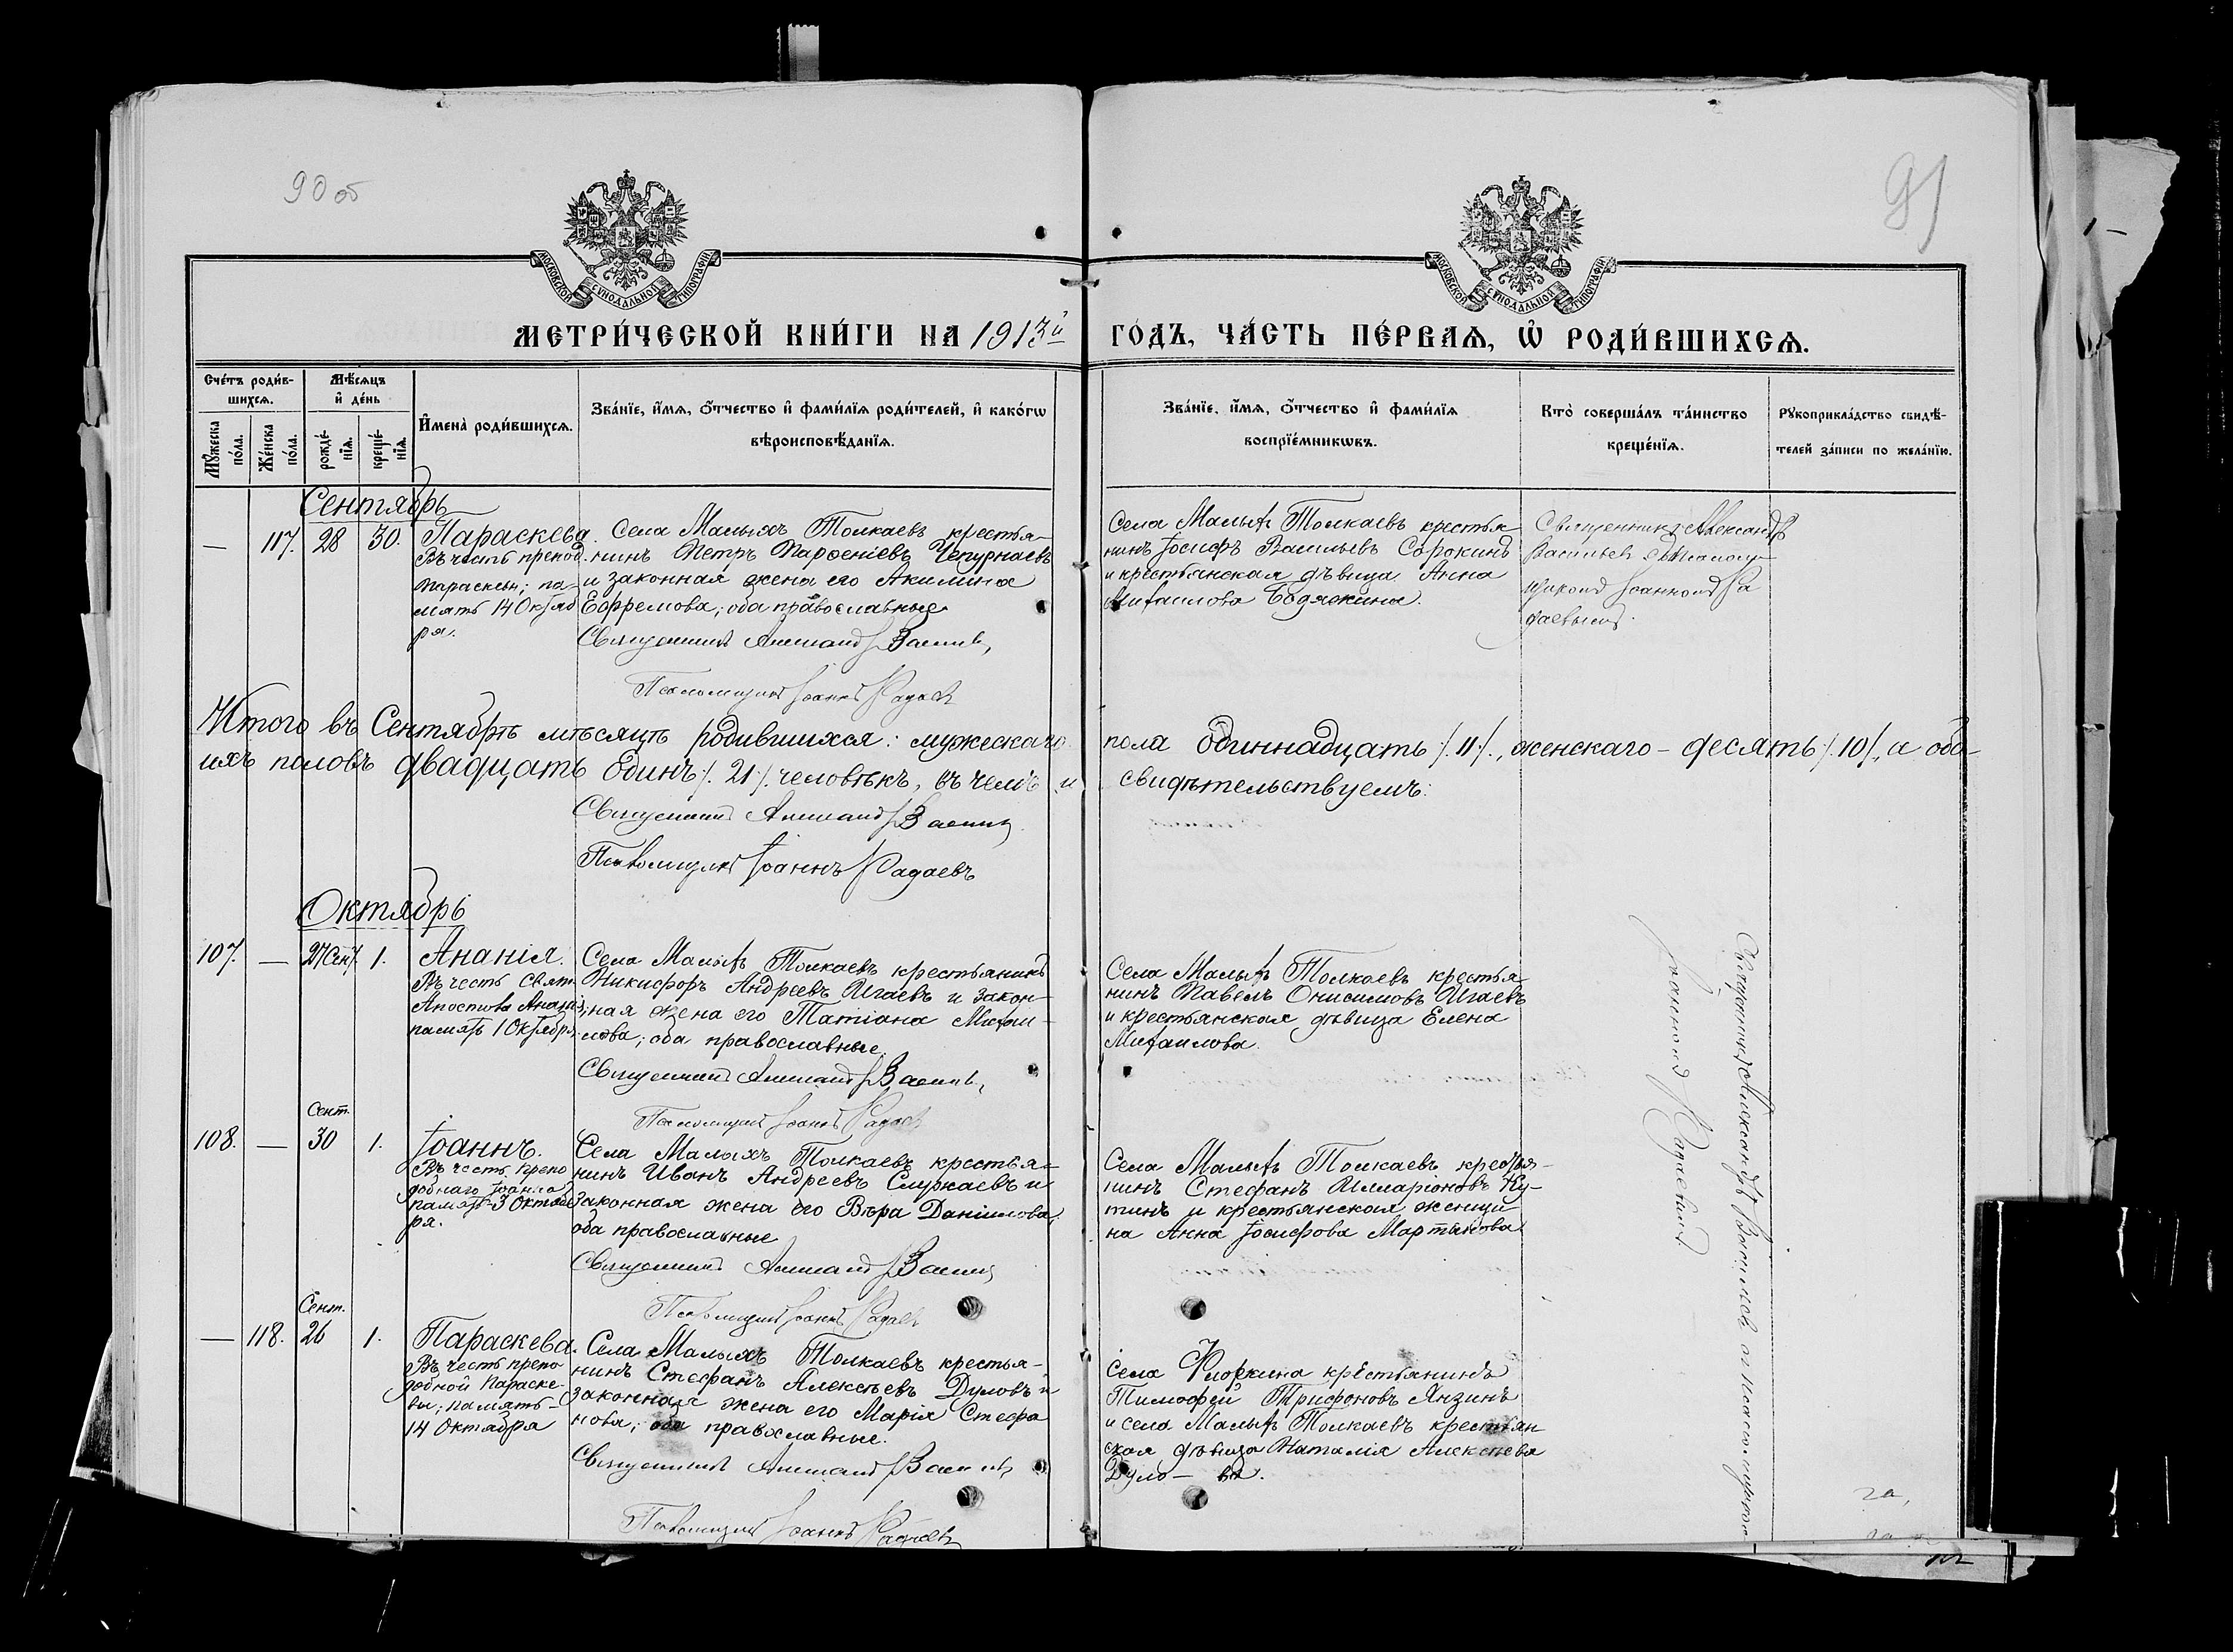 90 об
91
МОСКОВСКОЙ СѴНОДАЛЬНОЙ ТИПОГРАФІИ
МОСКОВСКОЙ СѴНОДАЛЬНОЙ ТИПОГРАФІИ
МЕТРИ́ЧЕСКОЙ КНИ́ГИ НА 1913й ГО́ДЪ, ЧА́СТЬ ПЕ́РВАѦ, Ѡ҆ РОДИ́ВШИХСѦ.
Сче́тъ роди́в-
шихсѧ.
Мѣ́сѧцъ
и҆ де́нь
Мꙋ́жеска
по́ла.
Же́нска
по́ла.
рожде́-
нїѧ.
креще́-
нїѧ.
И҆мена̀ роди́вшихсѧ.
Зва́нїе, и҆́мѧ, ѻ҆́тчество и҆ фами́лїѧ роди́телей, и҆ како́гѡ
вѣроисповѣ́данїѧ.
Зва́нїе, и҆́мѧ, ѻ҆́тчество и҆ фами́лїѧ
воспрїе́мникѡвъ.
Кто̀ соверша́лъ та́инство
креще́нїѧ.
Рꙋкоприкла́дство свидѣ́-
телей за́писи по жела́нїю.
Сентябрь
— 117. 28 30.
Параскева.
Въ честь препод.
Параскевы; па-
мять 14 Октяб
ря.
Села Малыхъ Толкаевъ крестья-
нинъ Петръ Парѳеніевъ Чепурнаевъ
и законная жена его Акилина
Ефремова; оба православные
Священникъ Александръ Васильевъ
Псаломщикъ Іоаннъ Радаевъ
Села Малыхъ Толкаевъ крестья
нинъ Іосифъ Васильевъ Сорокинъ
и крестьянская дѣвица Анна
Михаилова Бодякина.
Священникъ Александръ
Васильевъ съ псалом-
щикомъ Іоанномъ Ра
даевымъ.
Итого въ Сентябрѣ мѣсяцѣ родившихся: мужескаго пола одиннадцать /.11/., женскаго – десять /.10/., а обо-
ихъ половъ двадцать одинъ /.21/. человѣкъ, въ чемъ и свидѣтельствуемъ:
Священникъ Александръ Васильевъ
Псаломщикъ Іоаннъ Радаевъ
Октябрь
107. — 27 Сент. 1.
Ананія.
Въ честь Свят.
Апостола Ананія;
память 1 Октября.
Села Малыхъ Толкаевъ крестьянинъ
Никифоръ Андреевъ Игаевъ и закон-
ная жена его Татіана Михаи-
лова; оба православные.
Священникъ Александръ Васильевъ
Псаломщикъ Іоаннъ Радаевъ
Села Малыхъ Толкаевъ крестья-
нинъ Павелъ Онисимовъ Игаевъ
и крестьянская дѣвица Елена
Михаилова.
Священникъ Александръ Васильевъ съ псаломщикомъ
Іоанномъ Радаевымъ.
Сент.
108. — 30 1.
Іоаннъ.
Въ честь препо
добнаго Іоанна
память 3 Октяб
ря.
Села Малыхъ Толкаевъ крестья-
нинъ Иванъ Андреевъ Слуркаевъ и
законная жена его Вѣра Даніилова,
оба православные
Священникъ Александръ Васильевъ
Псаломщикъ Іоаннъ Радаевъ
Села Малыхъ Толкаевъ крестья-
нинъ Стефанъ Илларіоновъ Ку-
тинъ и крестьянская женщи
на Анна Іосифова Мартынова
Сент.
— 118. 26 1.
Параскева.
Въ честь препо
добной Параске-
вы; память –
14 Октября
Села Малыхъ Толкаевъ крестья-
нинъ Стефанъ Алексѣевъ Дуловъ и
законная жена его Марія Стефа
нова; оба православные.
Священникъ Александръ Васильевъ
Псаломщикъ Іоаннъ Радаевъ
Села Флоркина крестьянинъ
Тимофей Трифоновъ Янзинъ
и села Малыхъ Толкаевъ крестьян
ская дѣвица Наталія Алексѣева
Дуло – ва.